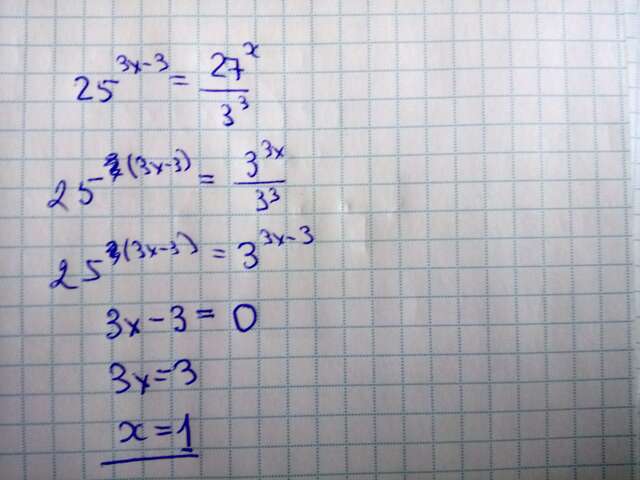 25^(3x-3) = 27^x / 3^3
25^(3x-3) = 3^(3x) / 3^3
25^(3x-3) = 3^(3x-3)
3x-3=0
3x=3
x=1